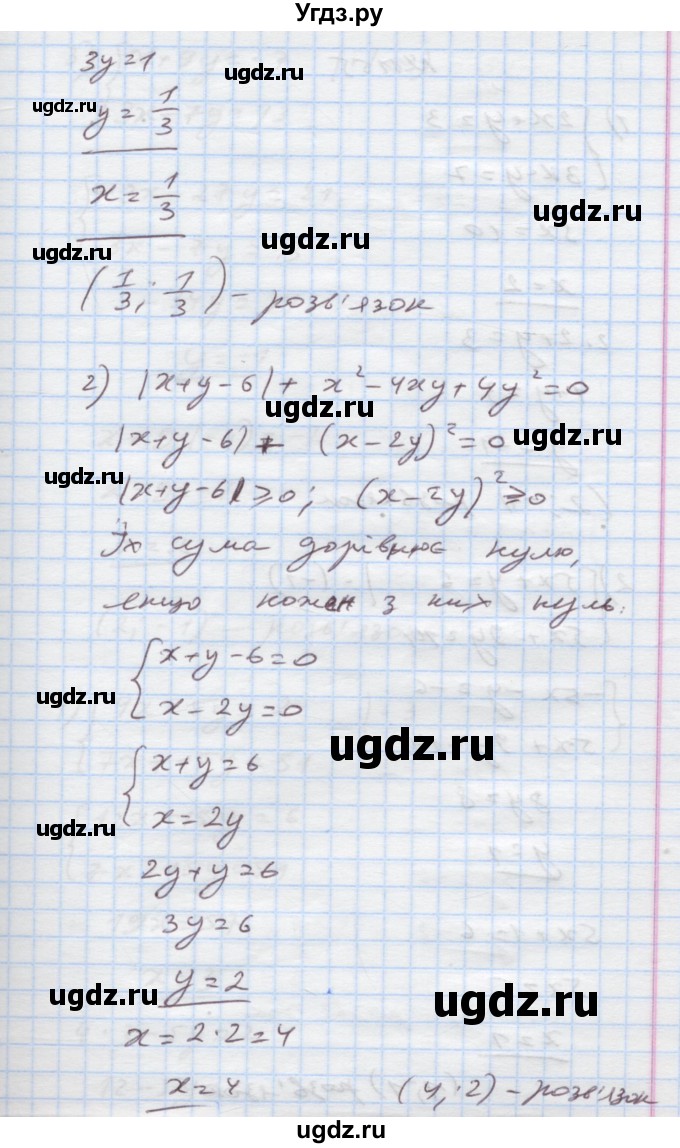 Угдз.ру
3y=1
y = 1/3
x = 1/3
(1/3; 1/3) – розв'язок
2) |x+y-6| + x²-4xy+4y²=0
|x+y-6| + (x-2y)²=0
|x+y-6|≥0; (x-2y)²≥0
Їх сума дорівнює нулю,
якщо кожен з них нуль:
{ x+y-6=0
x-2y=0
{ x+y=6
x=2y
2y+y=6
3y=6
y=2
x=2·2=4
x=4 (4; 2) – розв'язок
ugdz.ru
ugdz.ru
ugdz.ru
ugdz.ru
ugdz.ru
ugdz.ru
ugdz.ru
ugdz.ru
ugdz.ru
ugdz.ru
ugdz.ru
ugdz.ru
ugdz.ru
ugdz.ru